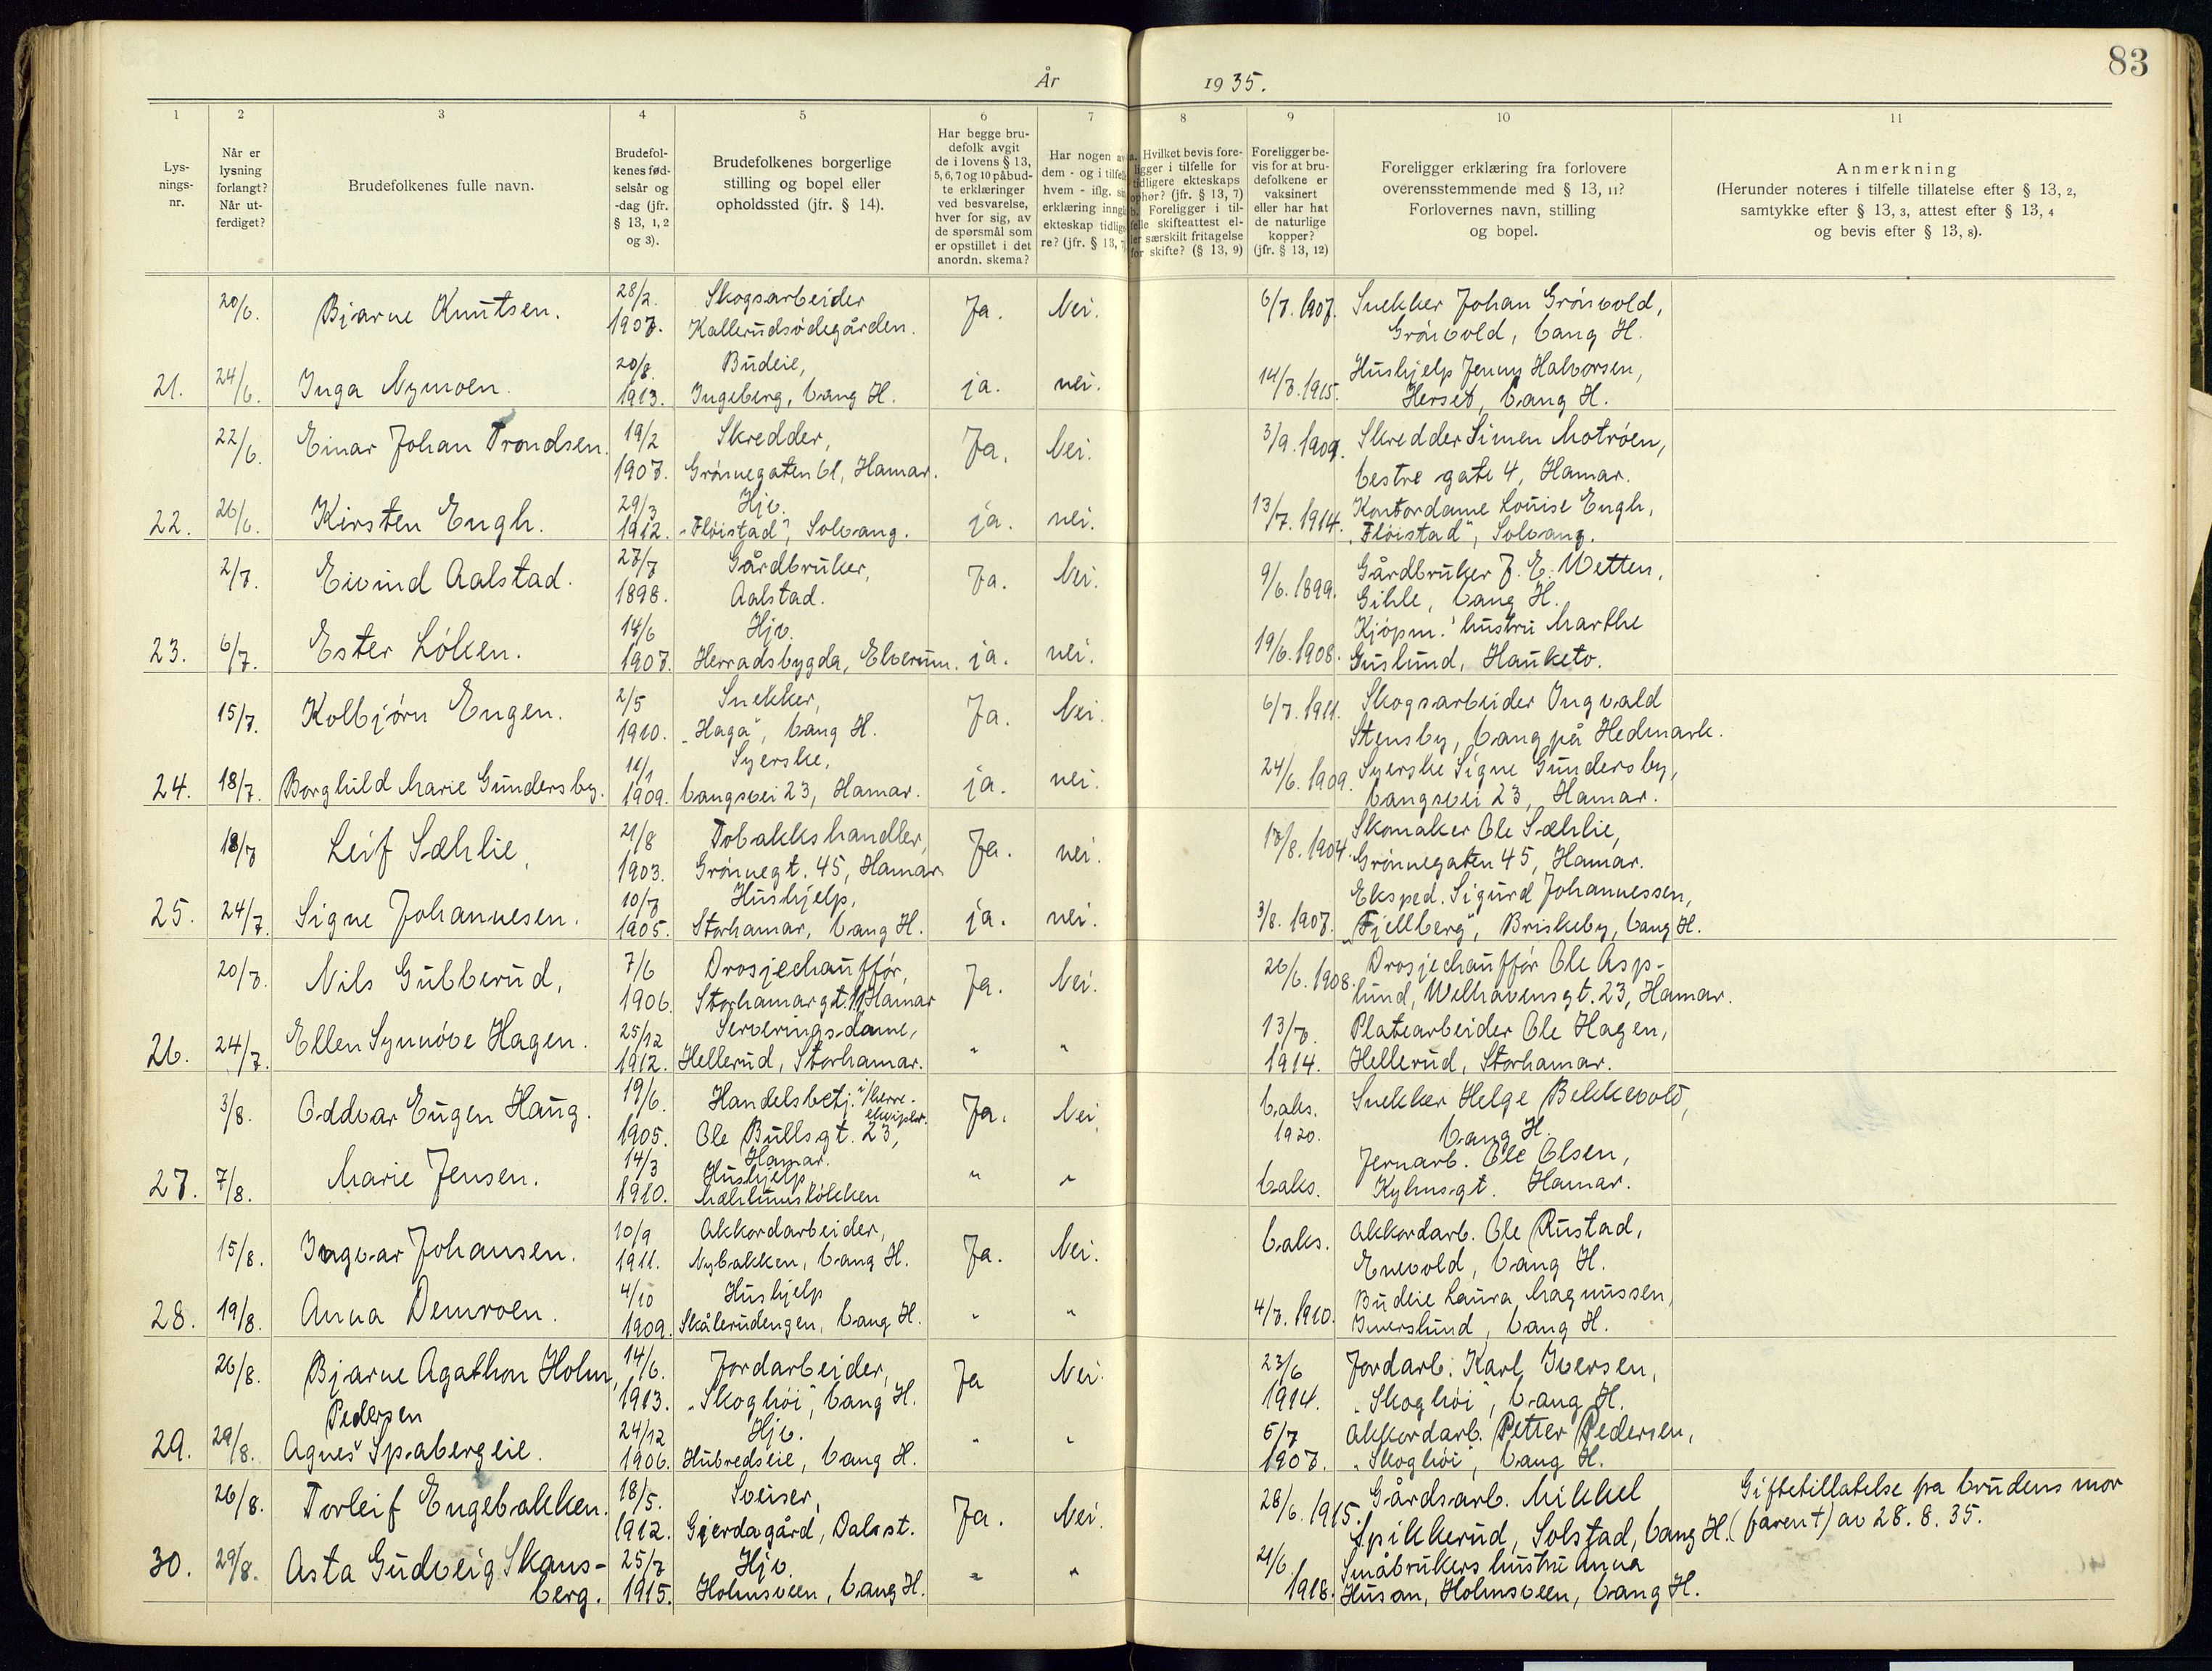 83
År 1935.
1 2 3 4 5 6 7 8 9 10 11
Lys-
nings-
nr.
Når er
lysning
forlangt?
Når ut-
ferdiget?
Brudefolkenes fulle navn.
Brudefol-
kenes fød-
selsår og
-dag (jfr.
§ 13, 1, 2
og 3).
Brudefolkenes borgerlige
stilling og bopel eller
opholdssted (jfr. § 14).
Har begge bru-
defolk avgit
de i lovens § 13,
5, 6, 7 og 10 påbud-
te erklæringer
ved besvarelse,
hver for sig, av
de spørsmål som
er opstillet i det
anordn. skema?
Har nogen av
dem - og i tilfelle
hvem - iflg. sin
erklæring inngå
ekteskap tidlige
re? (jfr. § 13, 7
a. Hvilket bevis fore-
ligger i tilfelle for
tidligere ekteskaps
ophør? (jfr. § 13, 7)
b. Foreligger i til-
felle skifteattest el-
ler særskilt fritagelse
for skifte? (§ 13, 9)
Foreligger be-
vis for at bru-
defolkene er
vaksinert
eller har hat
de naturlige
kopper?
(jfr. § 13, 12)
Foreligger erklæring fra forlovere
overensstemmende med § 13, 11?
Forlovernes navn, stilling
og bopel.
Anmerkning
(Herunder noteres i tilfelle tillatelse efter § 13, 2,
samtykke efter § 13, 3, attest efter § 13, 4
og bevis efter § 13, 8).
20/6. Bjarne Knutsen. 28/2. Skogsarbeider Ja. Nei. 6/7. 1907. Snekker Johan Grönvold,
1907. Kallerudsödegården. Grönvold, Vang H.
20/8. Budeie, Hushjelp Jenny Halvorsen,
21. 24/6. Inga Nymoen. 1913. Ingeberg, Vang H. ja. nei. 14/7. 1915. Herset, Vang H.
22/6. Einar Johan Trondsen. 19/2 Skredder, Ja. Nei. 3/9. 1909. Skredder Simen Motröen,
1907. Grönnegaten 61, Hamar. Vestre gate 4, Hamar.
29/3 Hjv. 13/7. 1914. Kontordame Louise Engh,
22. 26/6. Kirsten Engh. 1912. "Flöistad", Solvang. ja. nei. "Flöistad", Solvang.
2/7. Eivind Aalstad. 27/7 Gårdbruker, Ja. Nei. 9/6. 1899. Gårdbruker J. E. Wetten,
1898. Aalstad. Gihle, Vang H.
14/6 Hjv. Kjöpm. hustru Marthe
23. 6/7. Ester Löken. 1907. Herradsbygda, Elverum. ja. nei. 19/6. 1908. Guslund, Hauketo.
15/7. Kolbjörn Engen. 2/5 Snekker, Ja. Nei. 6/7. 1911. Skogsarbeider Ingvald
1910. "Haga", Vang H. Stensby, Vang på Hedmark.
11/1 Syerske, 24/6. 1909. Syerske Signe Gundersby,
24. 18/7. Borghild Marie Gundersby. 1909. Vangsvei 23, Hamar. ja. nei. Vangsvei 23, Hamar.
18/7 Leif Sæhlie, 21/8 Tobakkshandler, Ja. nei. 17/8. 1904. Skomaker Ole Sæhlie,
1903. Grönnegt. 45, Hamar. Grönnegaten 45, Hamar.
10/7 Hushjelp, Eksped. Sigurd Johannessen,
25. 24/7. Signe Johannesen. 1905. Storhamar, Vang H. ja. nei. 3/8. 1907. "Fjellberg", Briskeby, Vang H.
20/7. Nils Gubberud, 7/6 Drosjechaufför, Ja. Nei. 26/6. 1908. Drosjechaufför Ole Asp-
1906. Storhamargt. 11 Hamar lund, Welhavensgt. 23, Hamar.
25/12 Serveringsdame, 13/7. Platearbeider Ole Hagen,
26. 24/7. Ellen Synnöve Hagen. 1912. Hellerud, Storhamar. " " 1914. Hellerud, Storhamar.
3/8. Oddvar Eugen Haug. 19/6. Handelsbetj. i herre- Ja. Nei. Vaks. Snekker Helge Bekkevold,
ekviper.
1905. Ole Bullsgt. 23, 1920. Vang H.
Hamar.
14/3 Hushjelp Jernarb. Ole Olsen,
27. 7/8. Marie Jensen. 1910. Mæhlumslökken " " Vaks. Kyhnsgt. Hamar.
15/8. Ingvar Johansen. 10/9 Akkordarbeider, Ja. Nei. Vaks. Akkordarb. Ole Rustad,
1911. Nybakken, Vang H. Enevold, Vang H.
4/10 Hushjelp Budeie Laura Magnussen,
28. 19/8. Anna Demroen. 1909. Skålerudengen, Vang H. " " 4/7. 1910. Imerslund, Vang H.
26/8. Bjarne Agathon Holm, 14/6. Jordarbeider, Ja Nei. 23/6 Jordarb. Karl Iversen,
Pedersen 1913. "Skoghöi", Vang H. 1914. "Skoghöi", Vang H.
24/12 Hjv. 5/7 Akkordarb. Petter Pedersen,
29. 29/8. Agnes Spabergeie. 1906. Hubredseie, Vang H. " " 1907. "Skoghöi", Vang H.
26/8. Torleif Engebakken. 18/5. Sveiser, Ja. Nei. 28/6. 1915. Gårdsarb. Mikkel Giftetillatelse fra brudens mor
1912. Gjerdagård, Dal st. Spikkerud, Solstad, Vang H. (barent) av 28. 8. 35.
25/7 Hjv. 21/6. Småbrukers hustru Anna
30. 29/8. Asta Gudveig Skans- " "
berg. 1915. Holmsveen, Vang H. 1918. Husan, Holmsveen, Vang H.